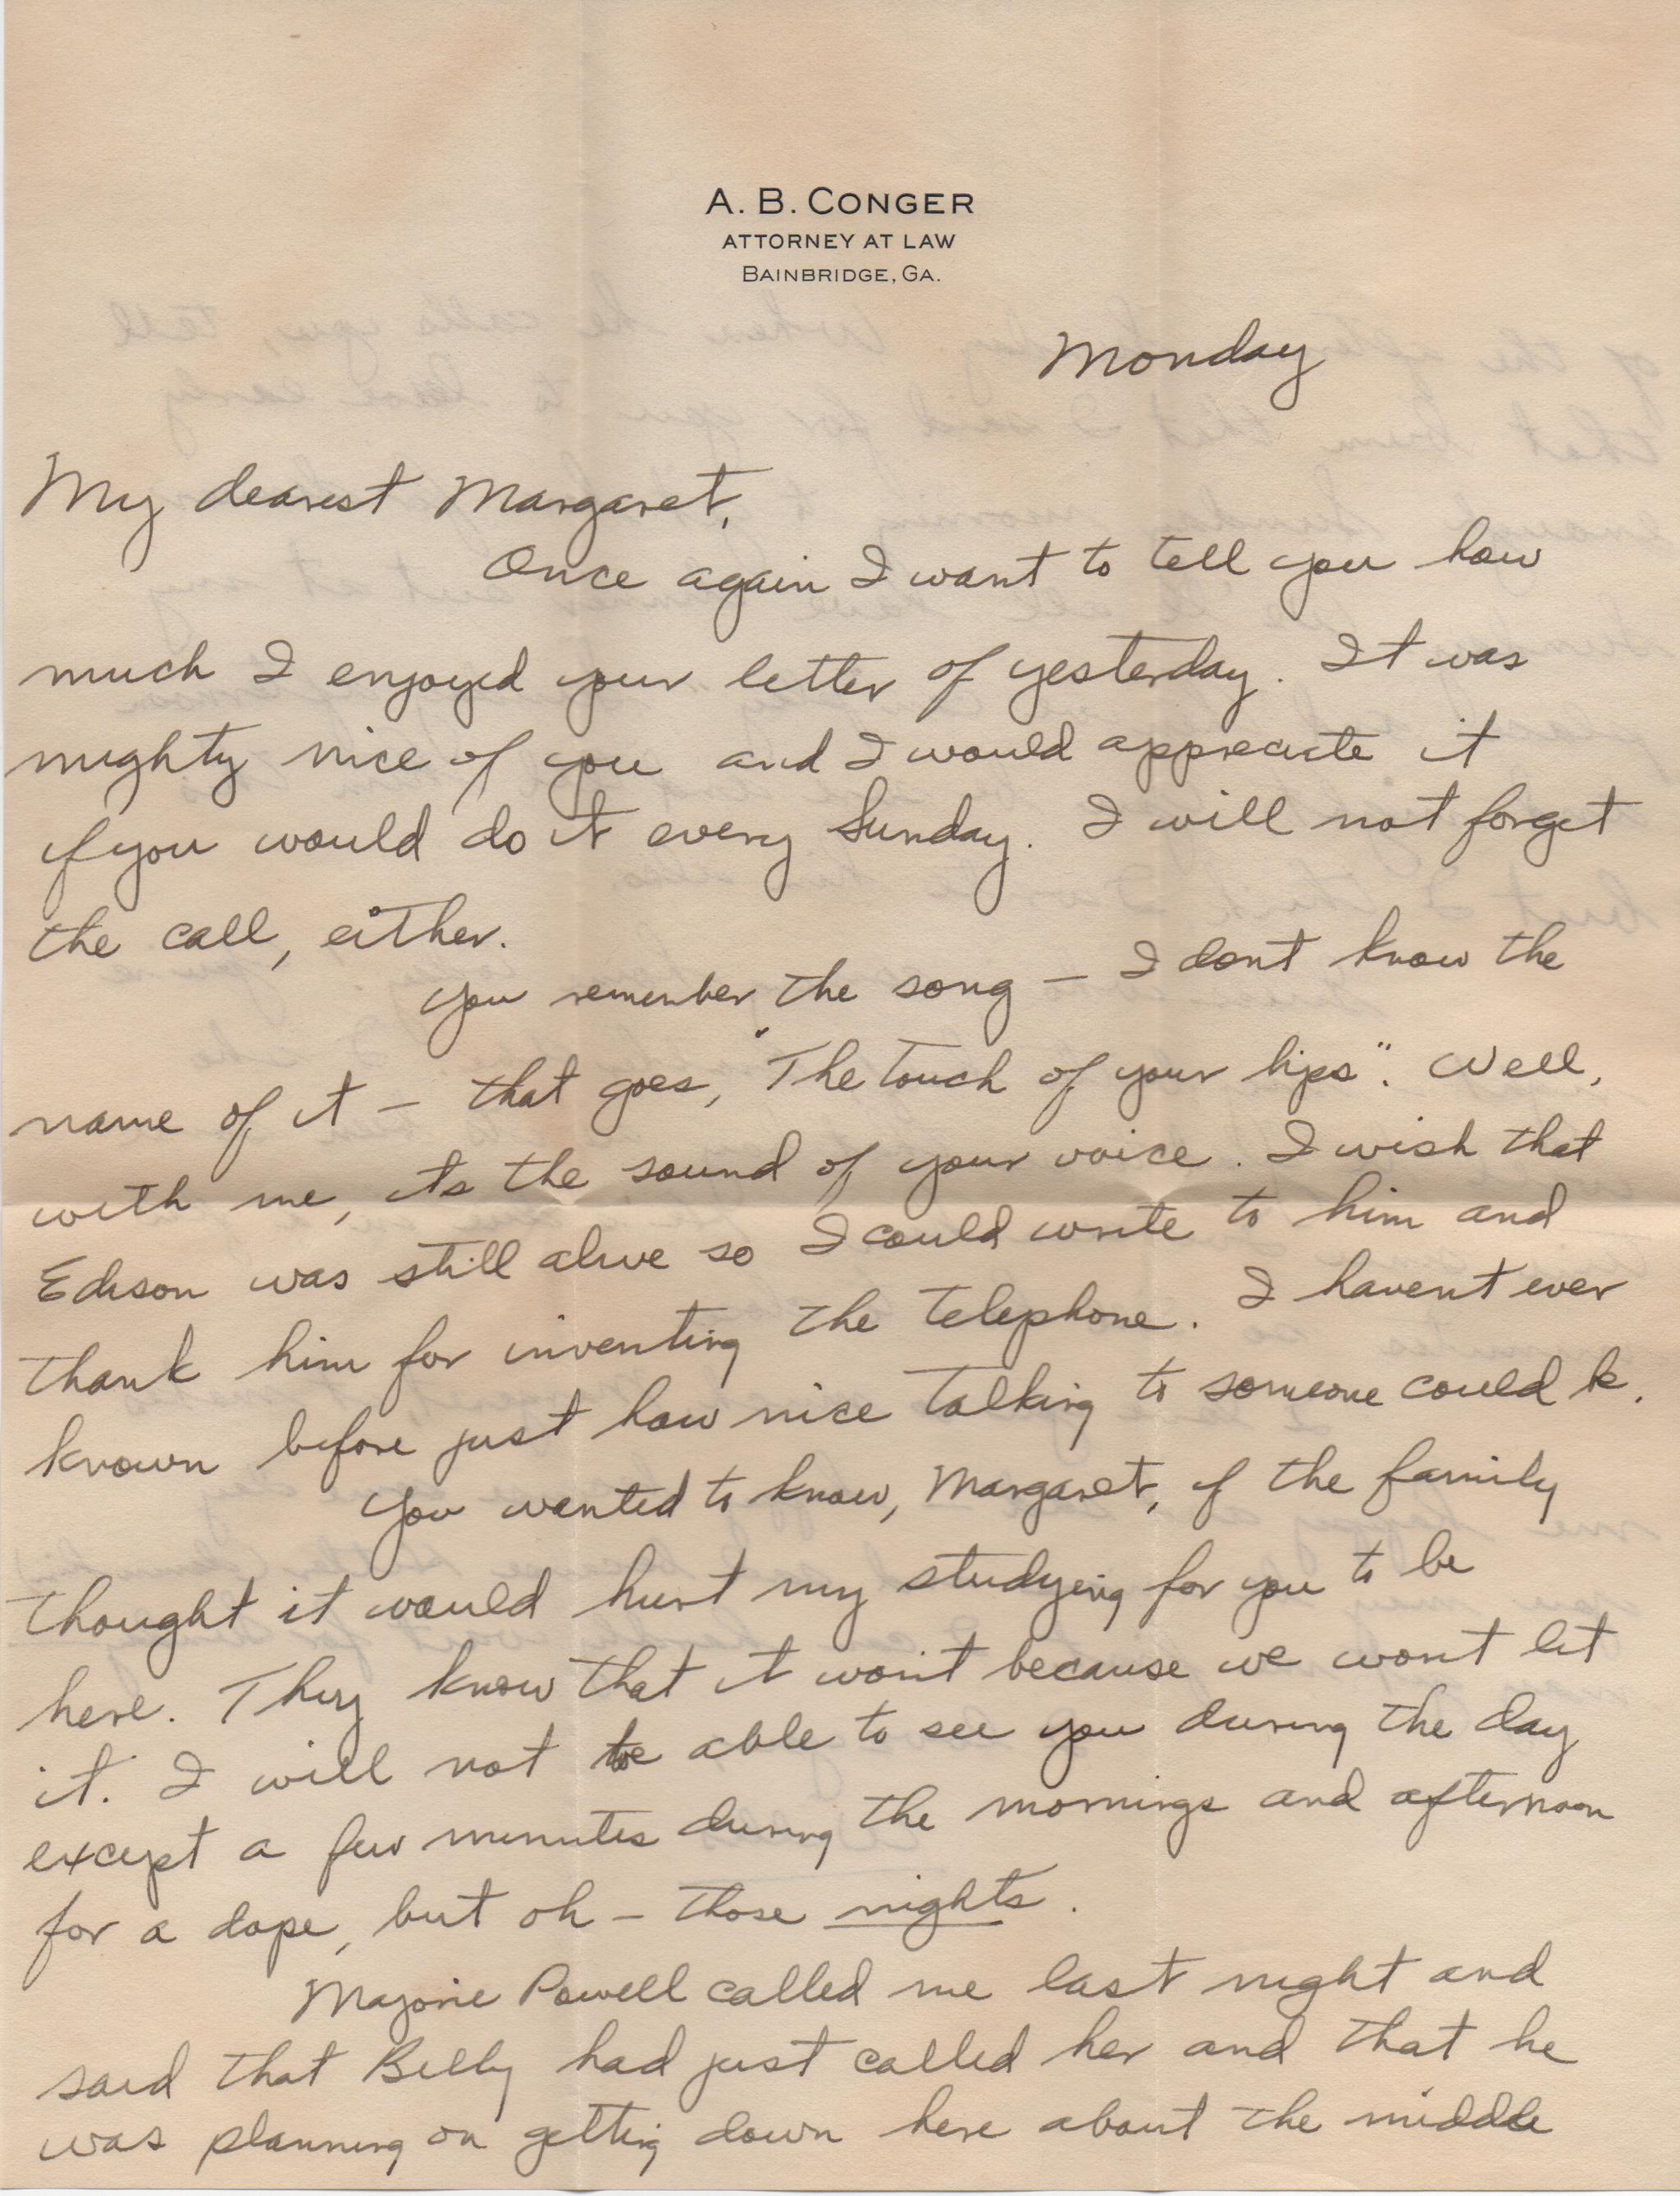 A. B. CONGER
ATTORNEY AT LAW
BAINBRIDGE, GA.
Monday
My dearest Margaret,
Once again I want to tell you how
much I enjoyed your letter of yesterday. It was
mighty nice of you and I would appreciate it
if you would do it every Sunday. I will not forget
the call, either.
You remember the song — I dont know the
name of it — that goes, "The touch of your lips". Well,
with me, its the sound of your voice. I wish that
Edison was still alive so I could write to him and
thank him for inventing the telephone. I havent ever
known before just how nice talking to someone could be.
You wanted to know, Margaret, if the family
thought it would hurt my studying for you to be
here. They know that it won't because we wont let
it. I will not be able to see you during the day
except a few minutes during the mornings and afternoon
for a dope, but oh — those nights.
Marjorie Powell called me last night and
said that Billy had just called her and that he
was planning on getting down here about the middle